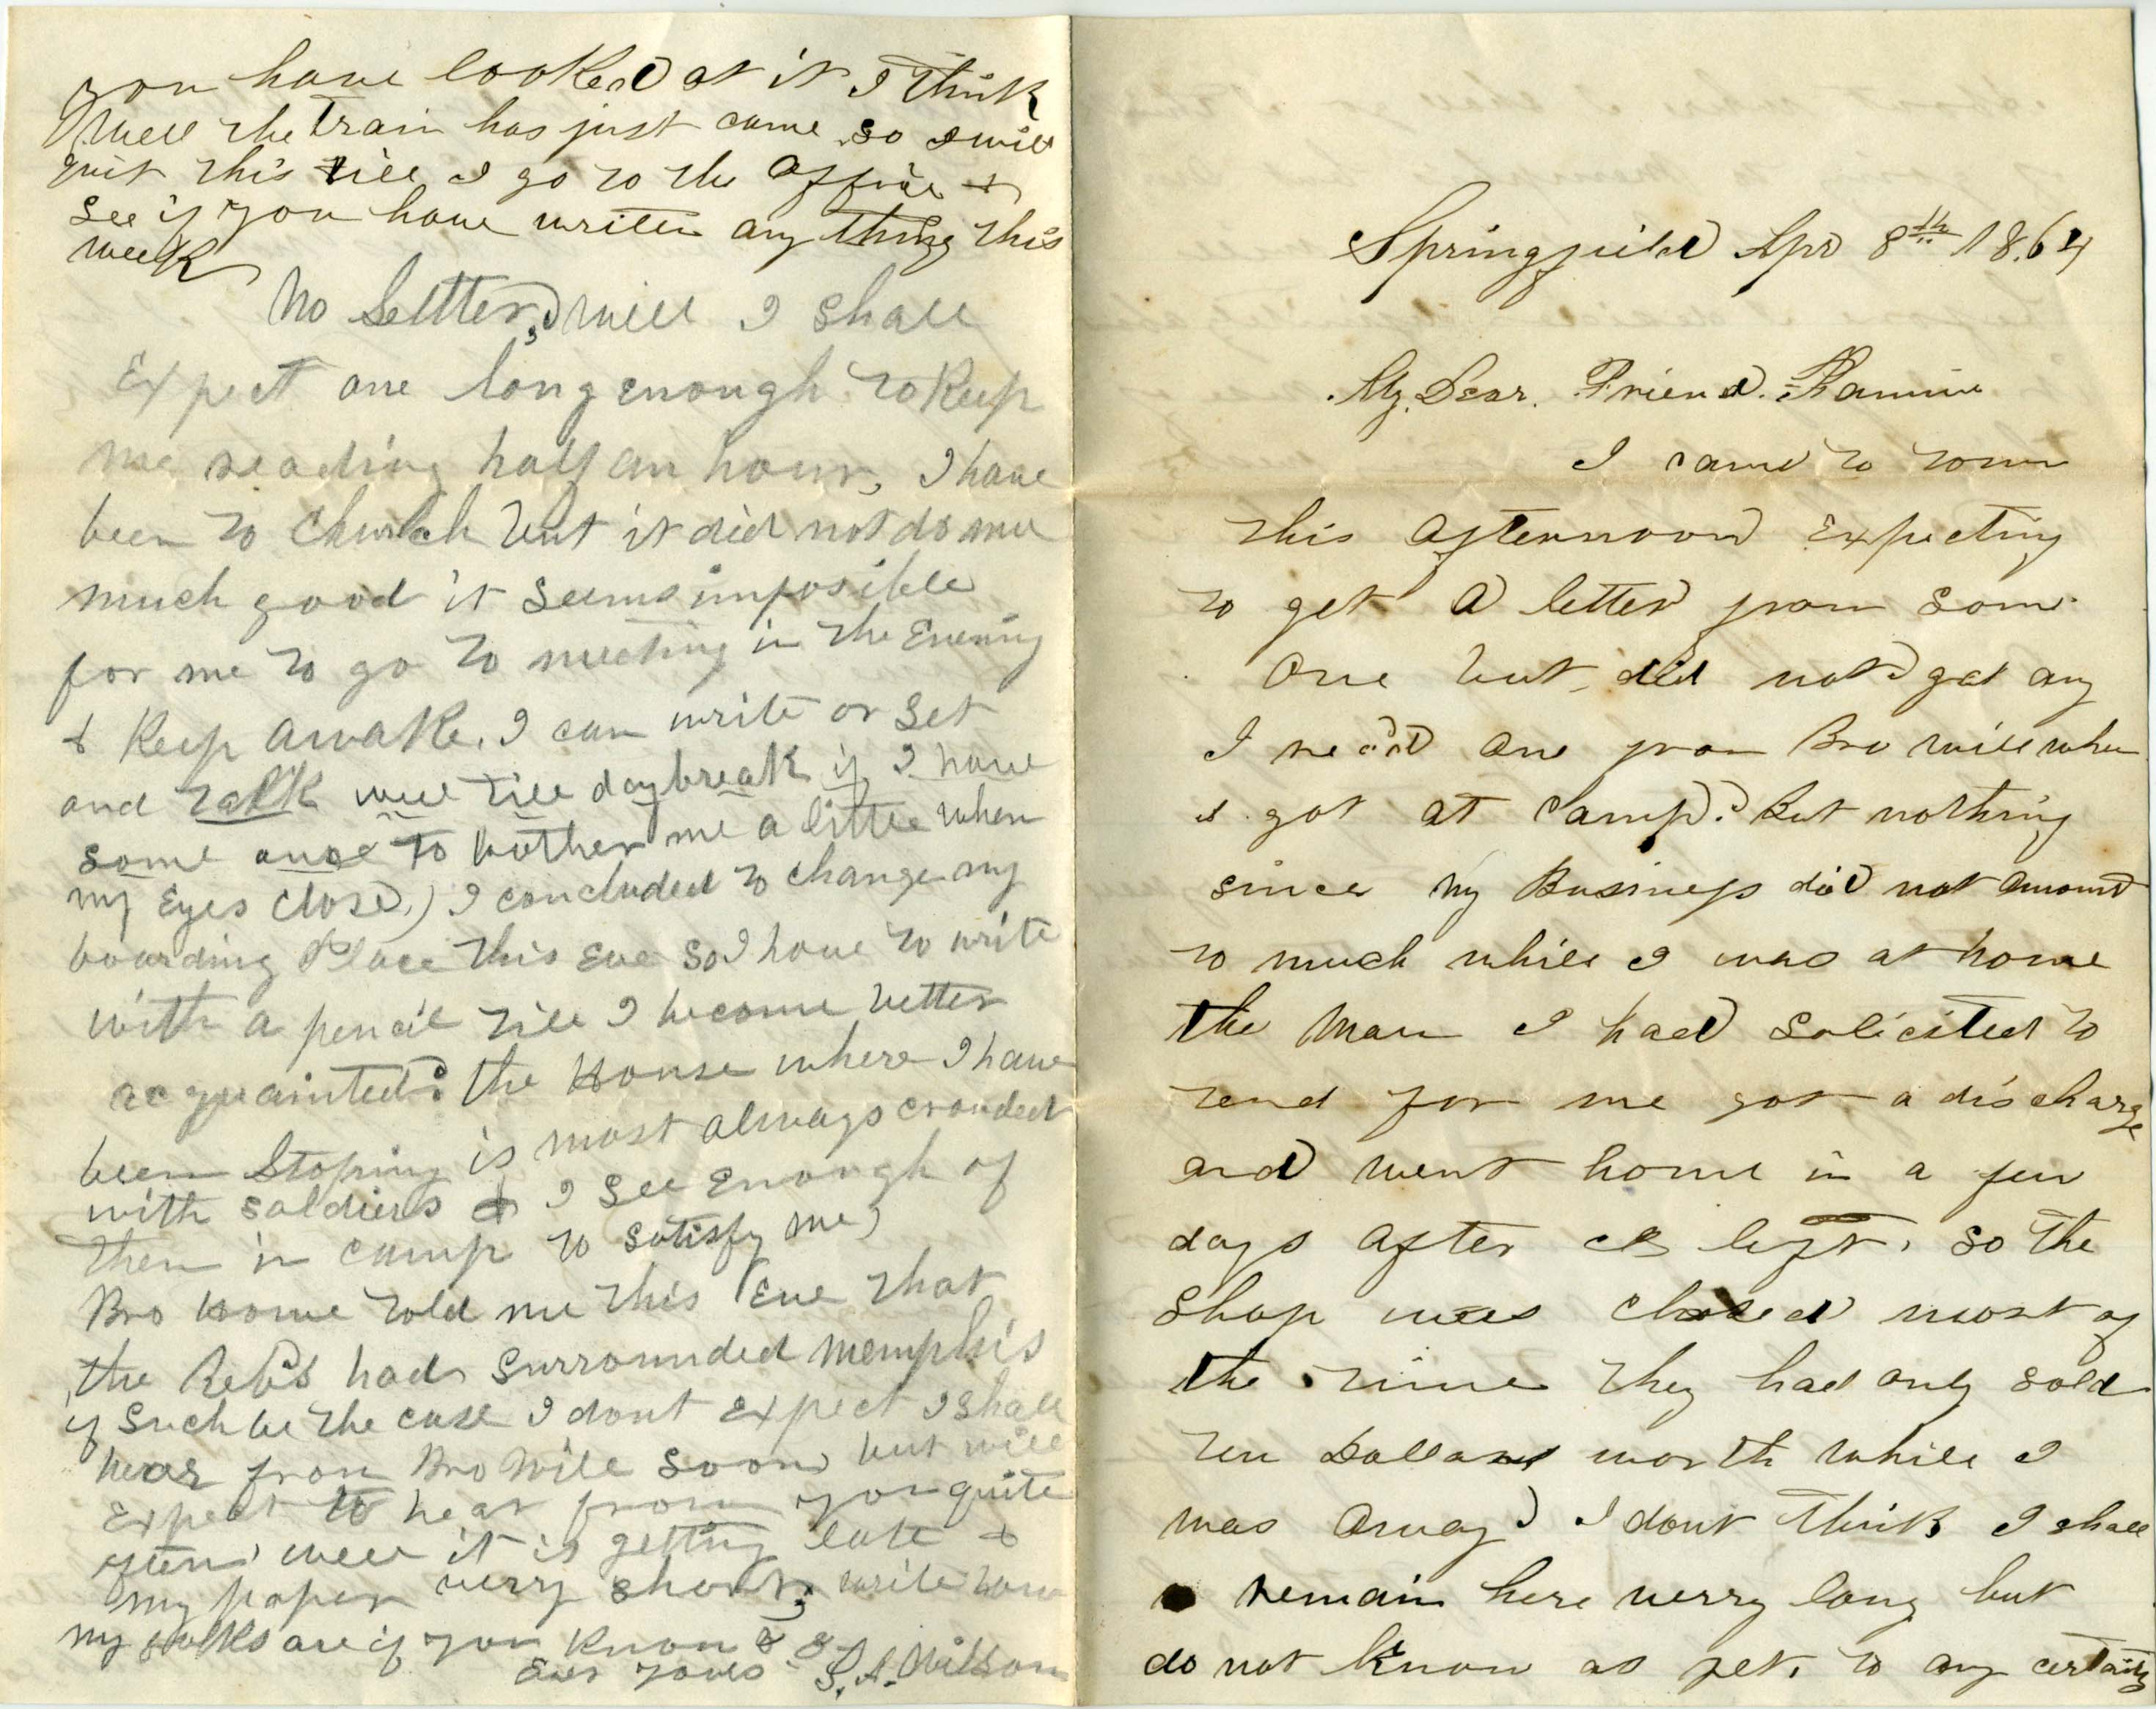 Springfield Apr 8th 1864
My Dear Friend Fannie
I came to town
this afternoon Expecting
to get a letter from some
one but did not get any
I read one from Bro Will when
I got at camp. But nothing
since My Business did not amount
to much while I was at home
the Man I had solicited to
tend for me got a discharge
and went home in a few
days after I left. so the
Shop was closed most of
the time they had only sold
ten Dollars worth while I
was away I dont think I shall
remain here verry long but
do not Know as yet. to any certainty
you have looked at it I think
Well the train has just came so I will
quit this till I go to the office &
see if you have writen any thing this
week
No Letter, well I shall
Expect one long enough to Keep
me reading half an hour, I have
been to Church but it did not do me
much good it seems imposible
for me to go to meeting in the Evening
& Keep awake. I can write or set
and talk well till daybreak if I have
some one to bother me a little when
my Eyes close) I concluded to change my
boarding Place this Eve so I have to write
with a pencil till I become better
acquainted. the House where I have
been Stoping is most always crouded
with soldiers & I see Enough of
them in camp to satisfy me,
Bro Howe told me this Eve that
the Rebs had surrounded Memphis
if such be the case I dont Expect I shall
hear from Bro Will soon but will
Expect to hear from you quite
often well it is getting late &
my paper verry short, write how
my folks are if you Know &
Ever yours S. A. Wilson